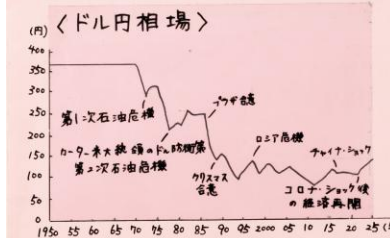 〈ドル円相場〉
(円)
400
350
300
250
200
150
100
50
0
第1次石油危機
カーター米大統領のドル防衛策
第2次石油危機
プラザ合意
クリスマス
合意
ロシア危機
チャイナ・ショック
コロナ・ショック後
の経済再開
1950 55 60 65 70 75 80 85 90 95 2000 05 10 15 20 25